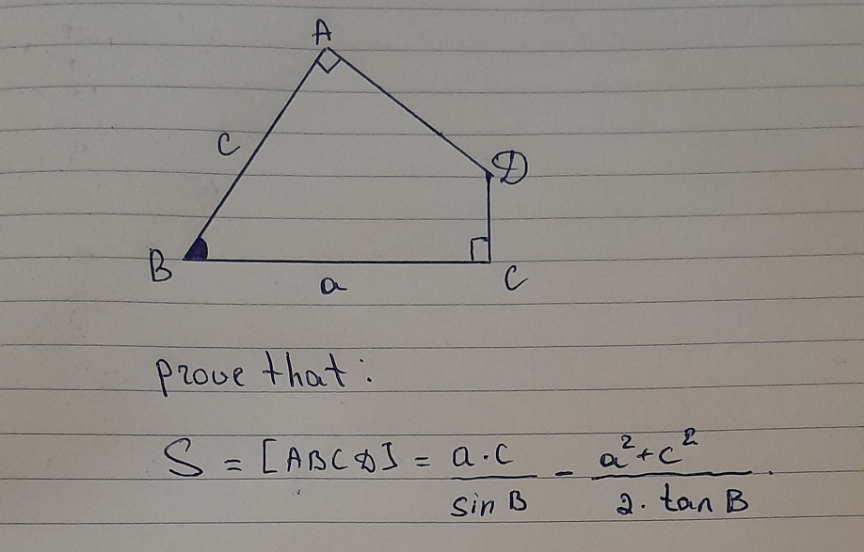 A
c
D
B
C
a
prove that:
S = [ABCD] = a·c/sin B - a²+c²/2·tan B.